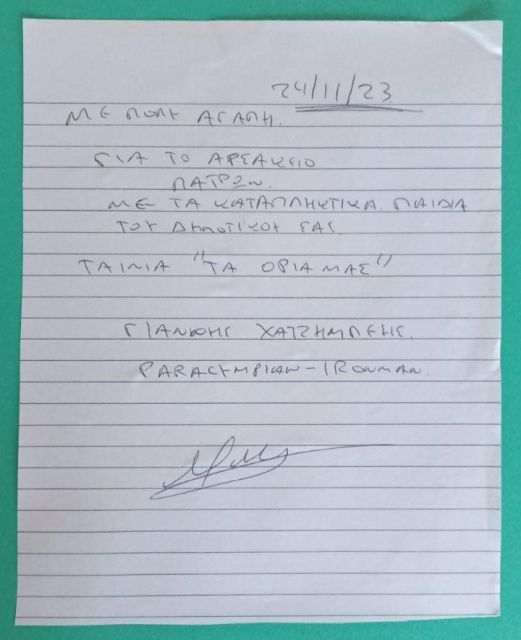 24/11/23
ΜΕ ΠΟΛΥ ΑΓΑΠΗ.
ΓΙΑ ΤΟ ΑΡΣΑΚΕΙΟ
ΠΑΤΡΩΝ.
ΜΕ ΤΑ ΚΑΤΑΠΛΗΚΤΙΚΑ ΠΑΙΔΙΑ
ΤΟΥ ΔΗΜΟΤΙΚΟΥ ΣΑΣ
ΤΑΙΝΙΑ "ΤΑ ΟΡΙΑ ΜΑΣ"
ΧΑΤΖΗΜΠΕΗΣ.
PARALYMPIAN-IRONMAN